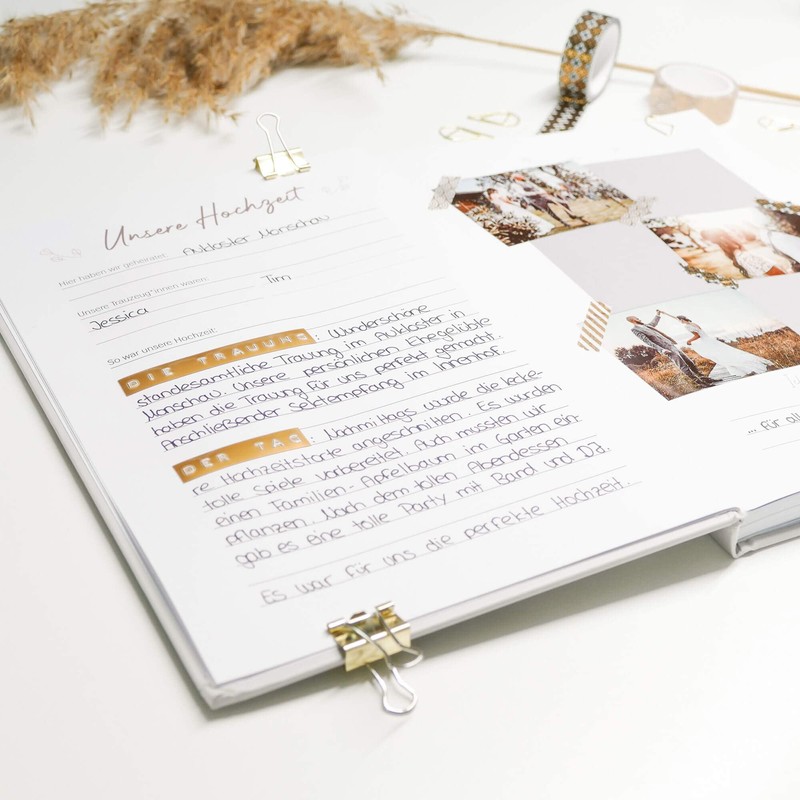 Unsere Hochzeit
Hier haben wir geheiratet: Aukloster Monschau
Unsere Trauzeug*innen waren:
Jessica Tim
So war unsere Hochzeit:
DIE TRAUUNG: Wunderschöne
standesamtliche Trauung im Aukloster in
Monschau. Unsere persönlichen Ehegelübte
haben die Trauung für uns perfekt gemacht.
Anschließender Sektempfang im Innenhof.
DER TAG: Nachmittags wurde die lecke-
re Hochzeitstorte angeschnitten. Es wurden
tolle Spiele vorbereitet. Auch mussten wir
einen Familien-Apfelbaum im Garten ein-
pflanzen. Nach dem tollen Abendessen
gab es eine tolle Party mit Band und DJ.
Es war für uns die perfekte Hochzeit.
... für all